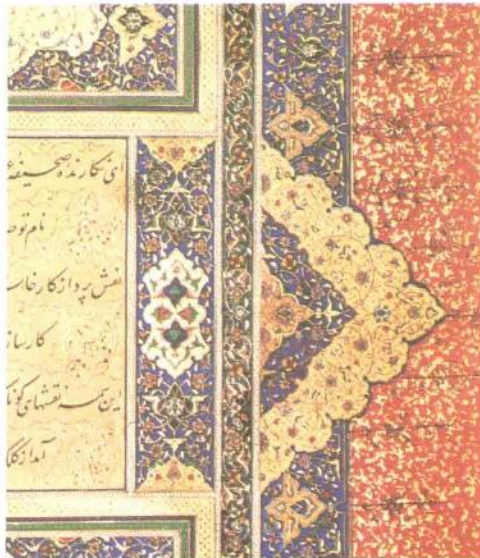 ای نگارنده صحیفه
نام تو
نقش پرداز کارخانه
کارساز
این همه نقشهای
آمد از کلک